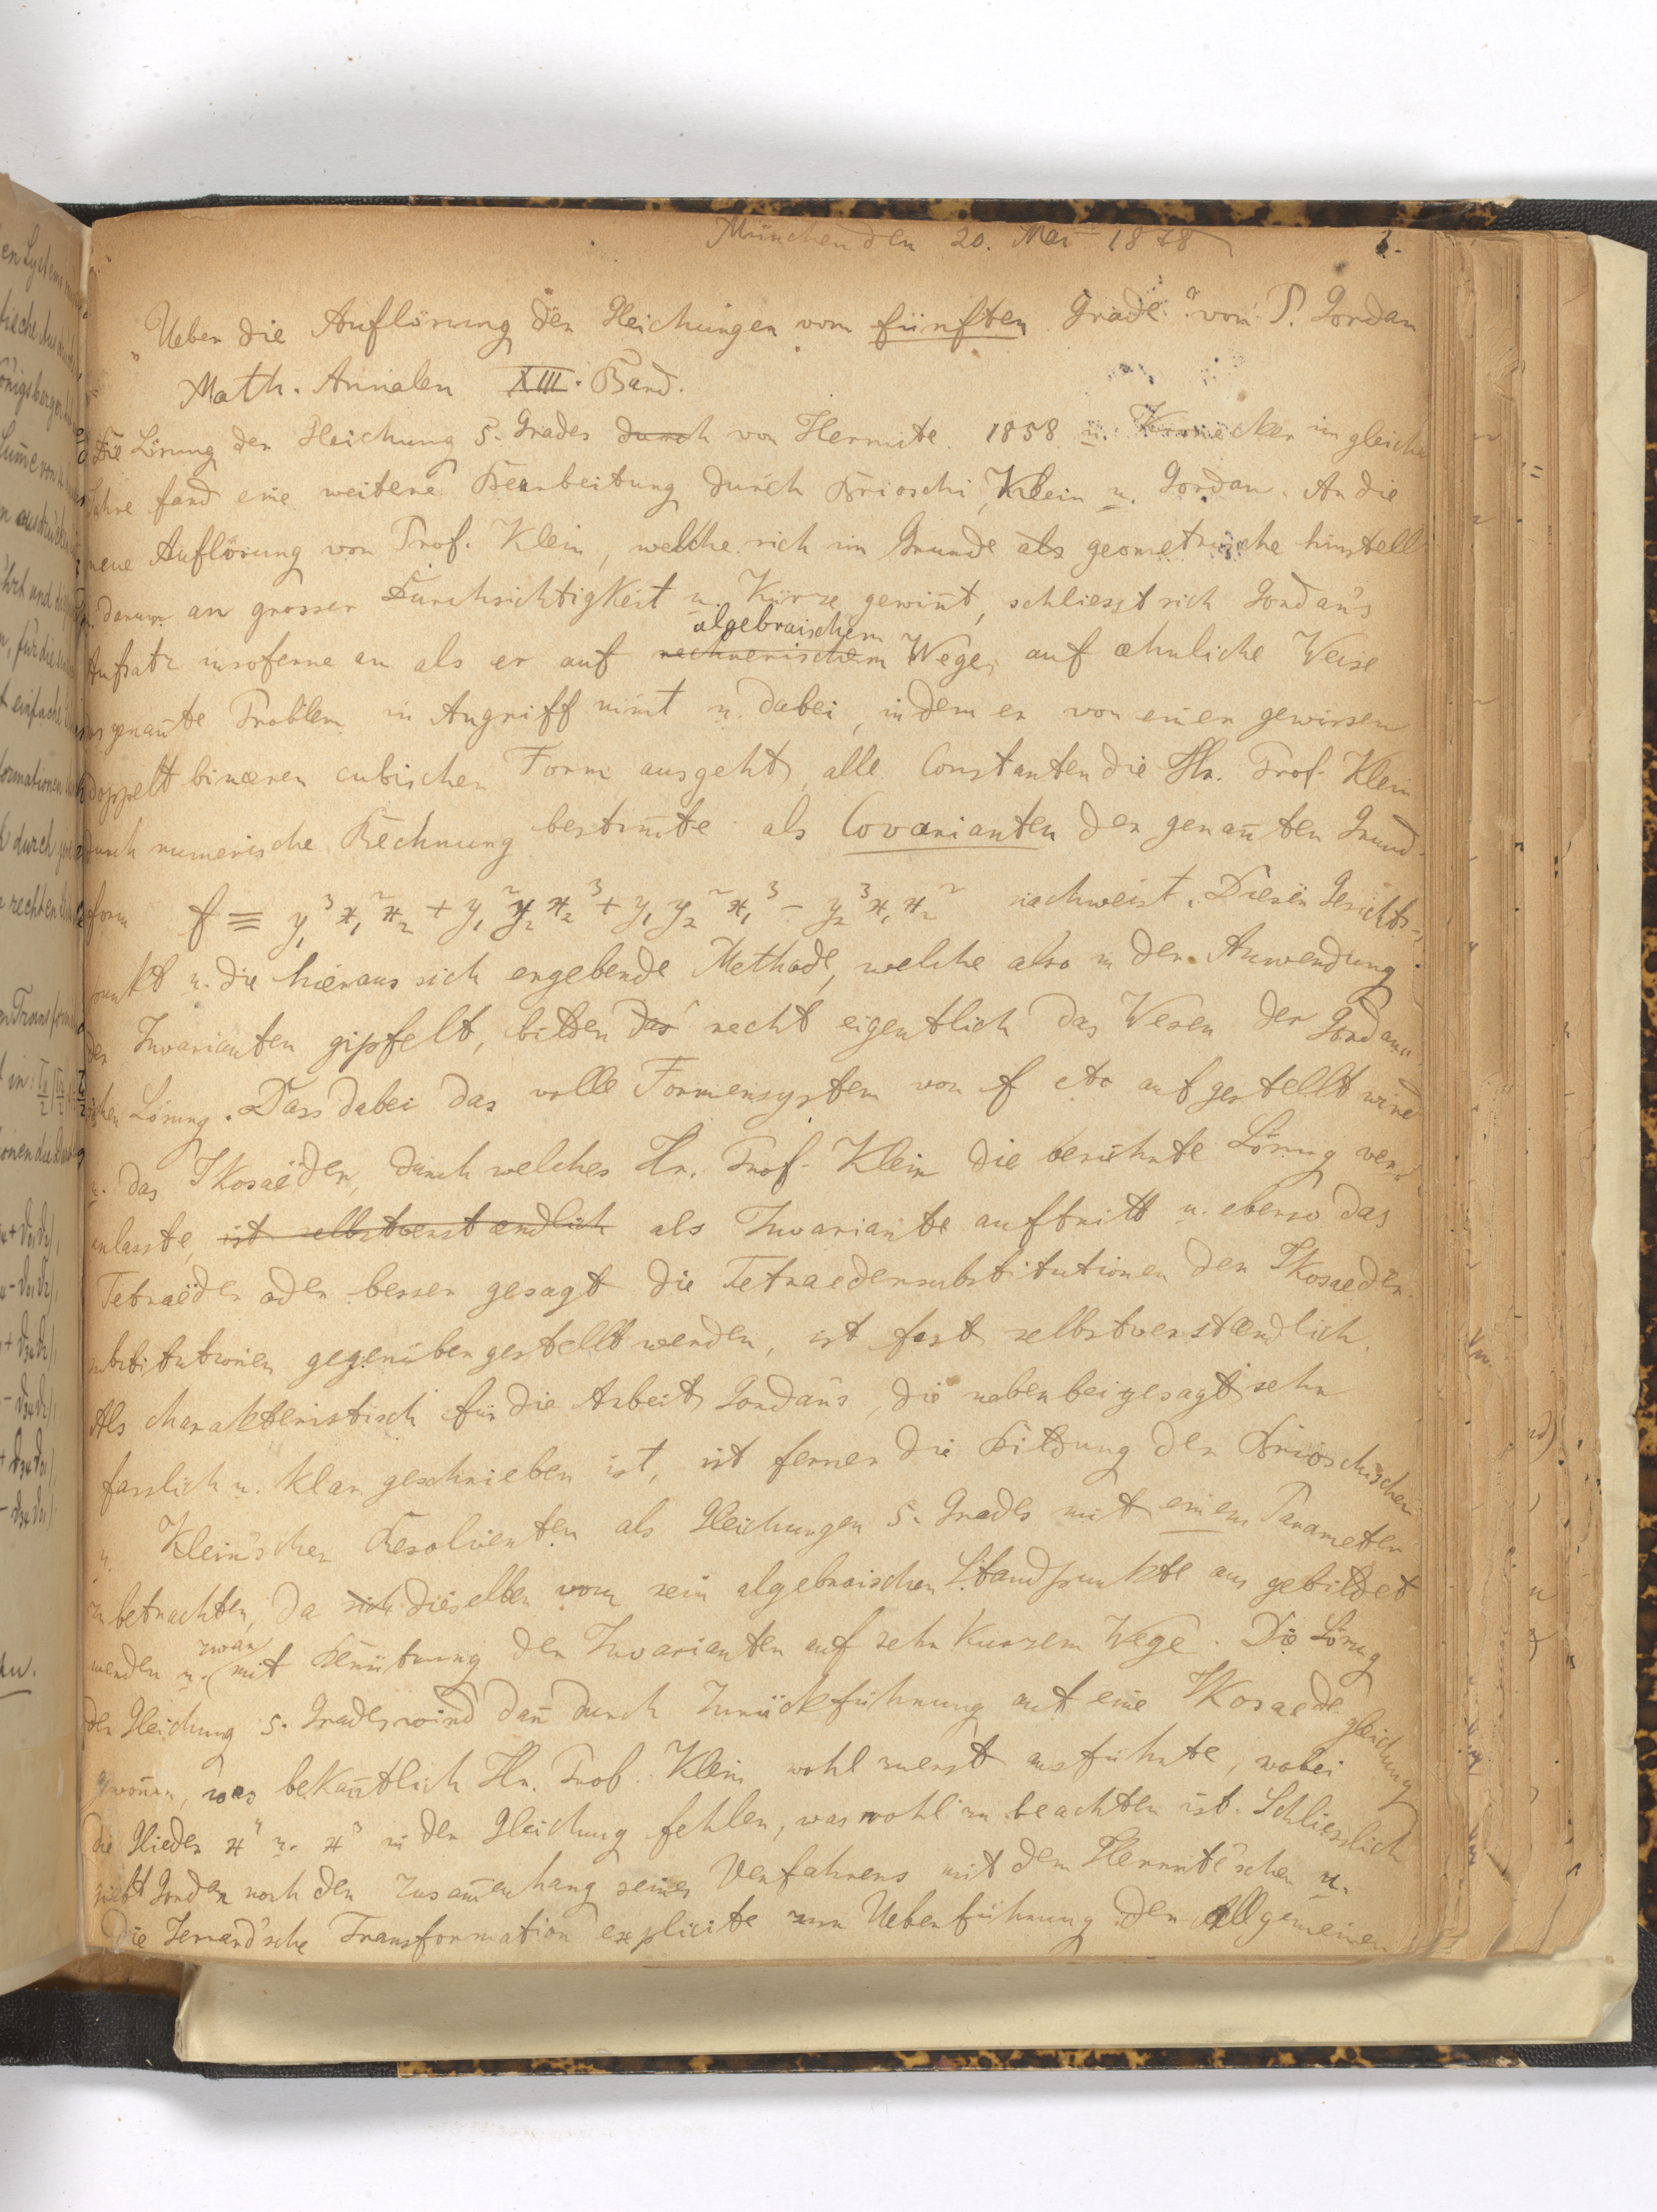 München den 20. Mai 1878
1.
„Ueber die Auflösung der Gleichungen vom fünften Grade“ von P. Gordan
Math. Annalen XIII. Band.
Die Lösung der Gleichung 5. Grades durch von Hermite 1858 u. Kronecker im gleichen
Jahre fand eine weitere Bearbeitung durch Brioschi, Klein u. Gordan. An die
neue Auflösung von Prof. Klein, welche sich im Grunde als geometrische hinstellt
u. darum an grosser Durchsichtigkeit u. Kürze gewin̄t, schliesst sich Gordan's
algebraischem
Aufsatz insoferne an als er auf rechnerischem Wege, auf æhnliche Weise
das genan̄te Problem in Angriff nim̄t u. dabei, indem er von einer gewissen
doppelt binæren cubischen Form ausgeht, alle Constanten die Hr. Prof. Klein
durch numerische Rechnung bestim̄te als Covarianten der genan̄ten Grund-
form f ≡ y₁³x₁²x₂ + y₁²y₂x₂³ + y₁y₂²x₁³ - y₂³x₁x₂² nachweist. Diesen Gesichts-
punkt u. die hieraus sich ergebende Methode, welche also in der Anwendung
der Invarianten gipfelt, bilden das recht eigentlich das Wesen der Gordan'
schen Lösung. Dass dabei das volle Formensystem von f etc aufgestellt wird
u. das Ikosaëder, durch welches Hr. Prof. Klein die berühmte Lösung ver-
anlasste, ist selbstverstændlich als Invariante auftritt u. ebenso das
Tetraëder oder besser gesagt die Tetraedersubstitutionen den Ikosaeder
substitutionen gegenübergestellt werden, ist fast selbstverstændlich.
Als charakteristisch für die Arbeit Gordan's, die nebenbei gesagt sehr
fasslich u. klar geschrieben ist, ist ferner die Bildung der Brioschischen
u. Klein'schen Resolventen als Gleichungen 5. Grades mit einem Parameter
zu betrachten, da sich dieselben vom rein algebraischen Standpunkte aus gebildet
zwar
werden u. mit Benützung der Invarianten auf sehr kurzem Wege. Die Lösung
der Gleichung 5. Grades wird dan̄ durch Zurückführung auf eine Ikosaedergleichung
gewon̄en, was bekan̄tlich Hr. Prof. Klein wohl zuerst ausführte, wobei
die Glieder x⁴ u. x³ in der Gleichung fehlen, was wohl zu beachten ist. Schliesslich
giebt Gordan noch den Zusam̄enhang seines Verfahrens mit dem Hermite'schen u.
die Jerrard'sche Transformation explicite zur Ueberführung der allgemeinen